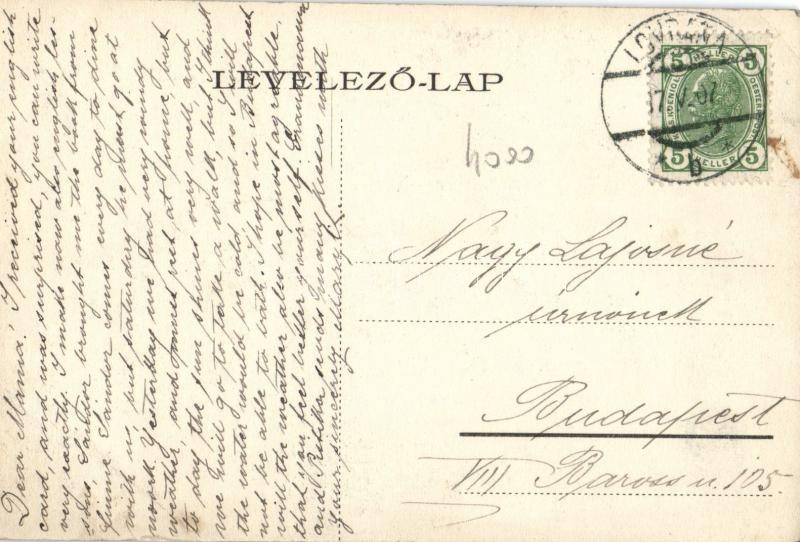 LEVELEZŐ-LAP
LOVRANA
17 V. 07
b
5 HELLER 5
5 HELLER 5
Nagy Lajosné
úrnőnek
Budapest
VIII Baross u. 105
Dear Mama! I received your english
card, and was surprised, you can write
very exactly. I made now also english les-
sons. brought me the book from
Fiume. Sándor comes every day to dine
with us, but saturday he must go at
work. Yesterday we had very windy
weather, and rest at home, but
to day the sun shines very well, and
we will go to take a walk, but I think
the water would be cold and so I will
not be able to bath. I hope in Budapest
will the weather also be most agreable,
that you feel better yourself. Grandmama
and sends many kisses with
Your sincerely Mary